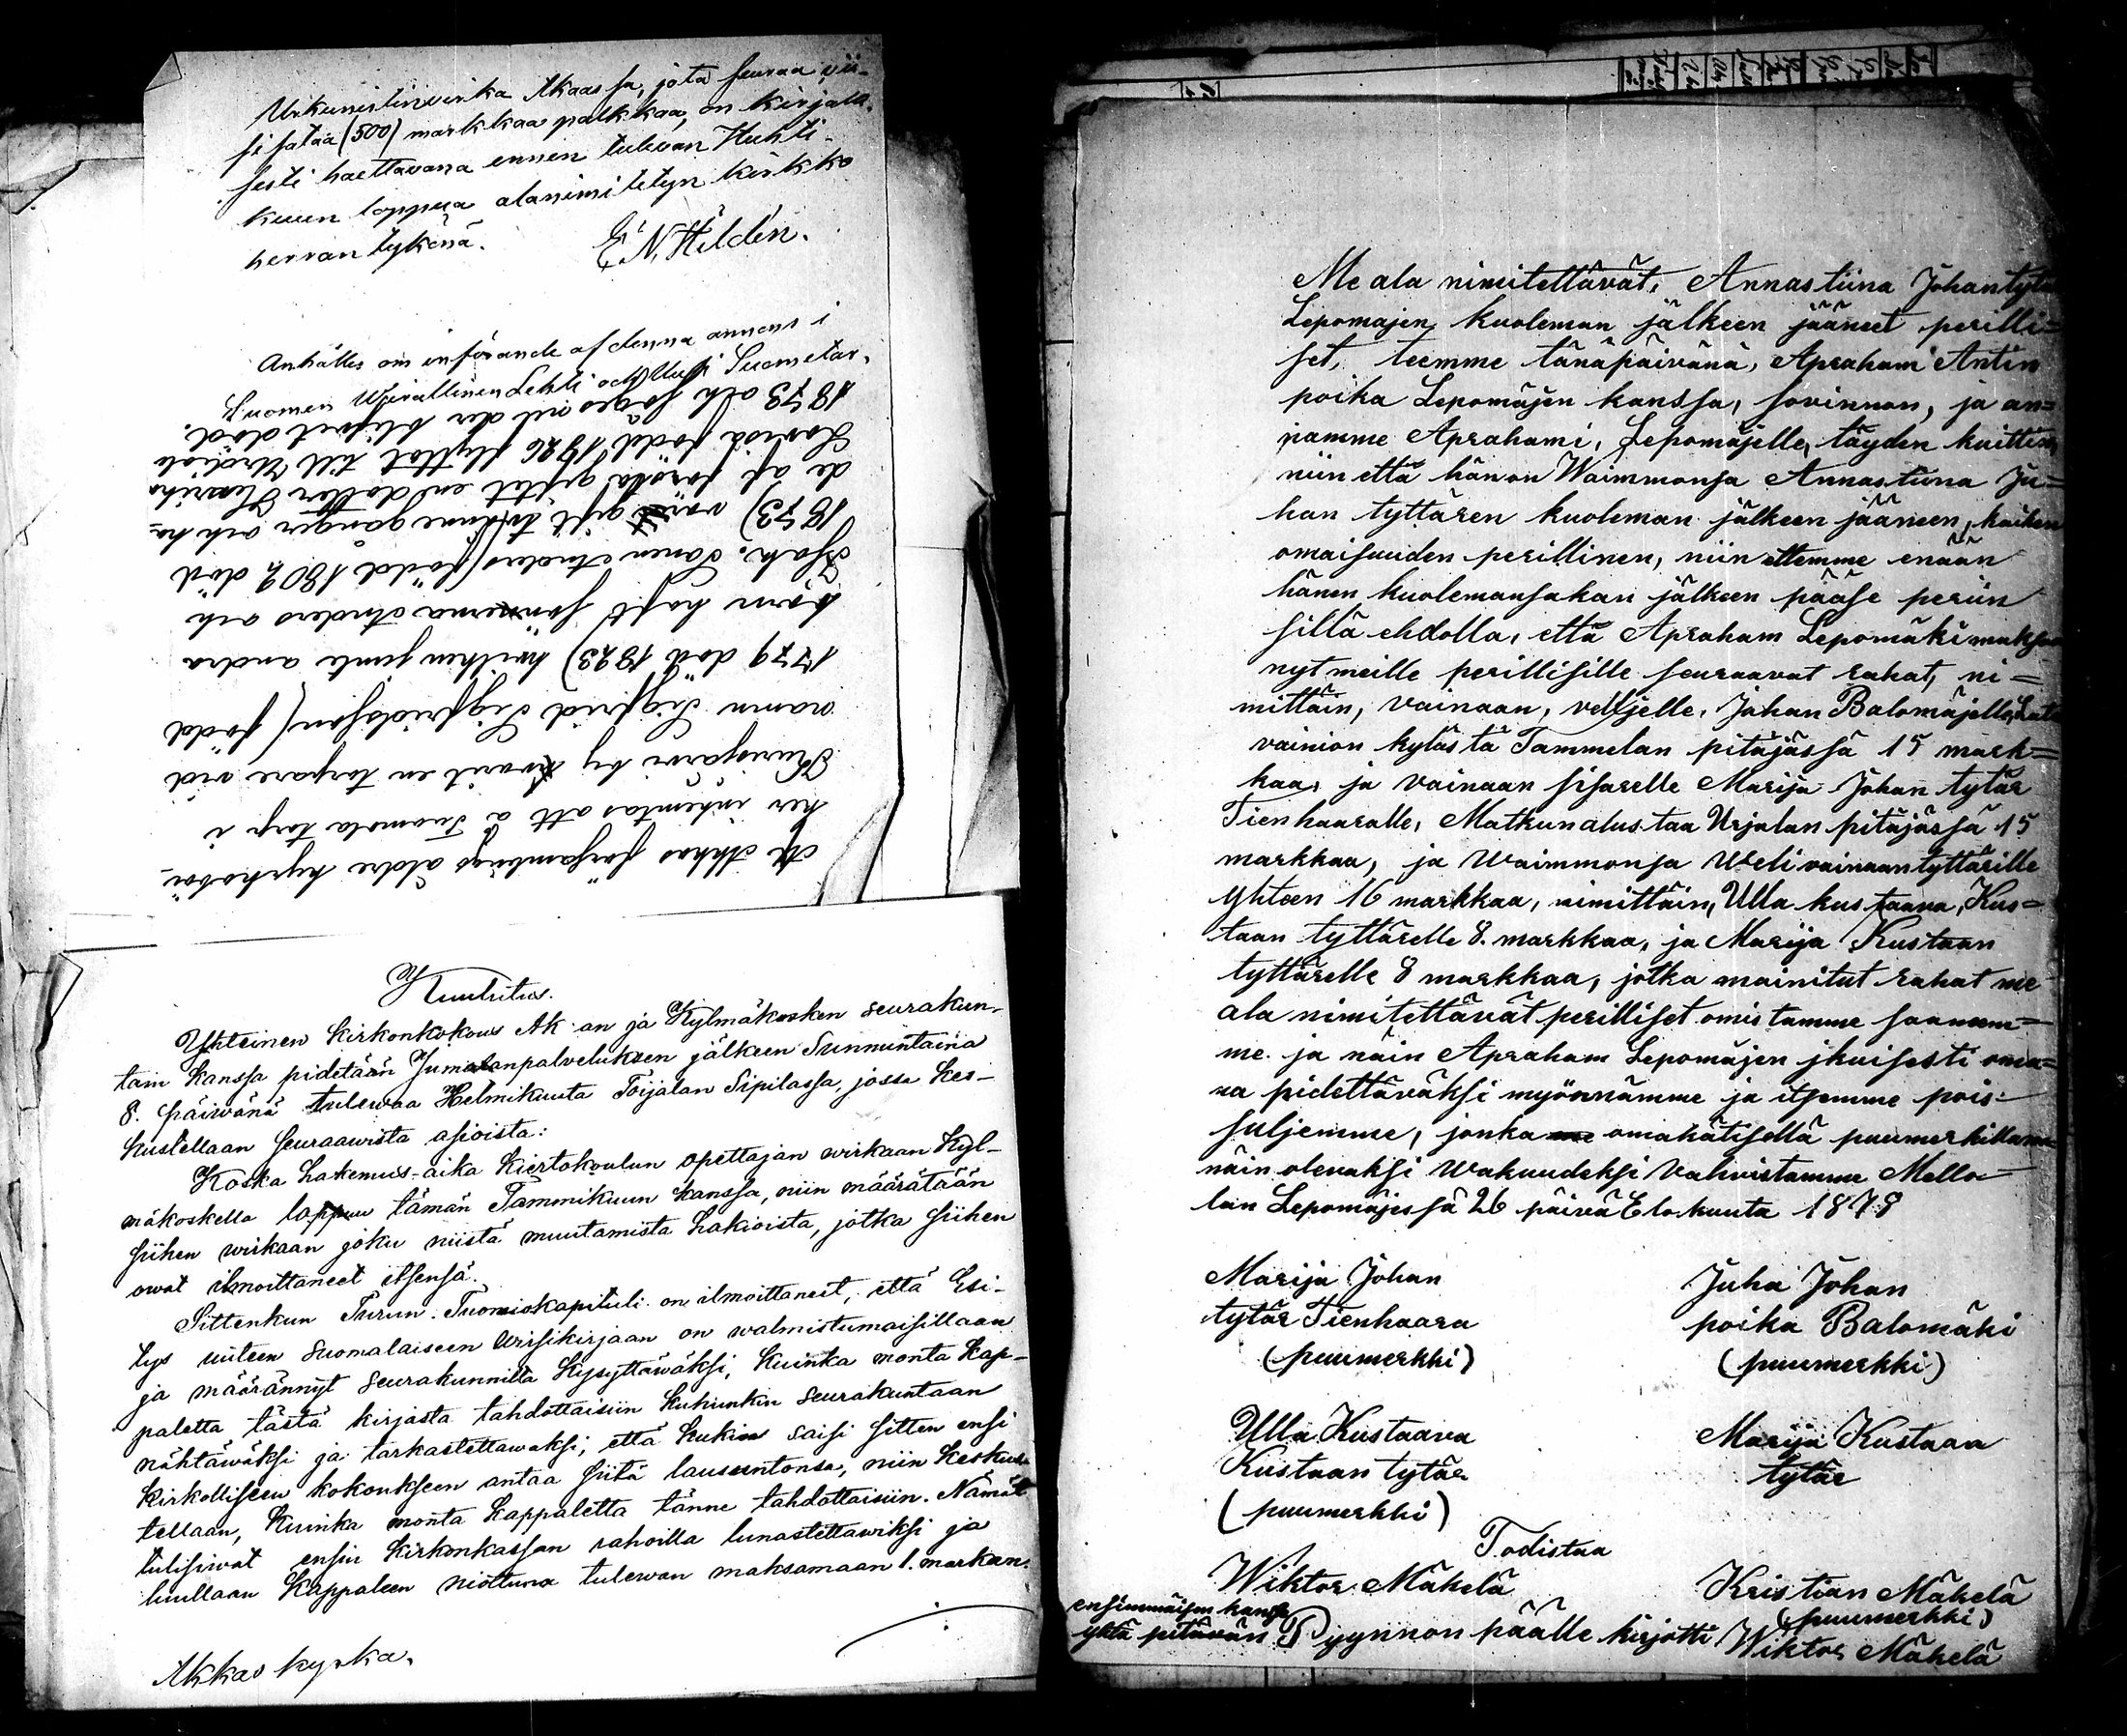 Urkunistinvirka Akaassa, jota seuraa vii-
si sataa (500) markkaa palkkaa, on kirjalli-
sesti haettavana ennen tulevan Huhti-
kuun loppua alanimitetyn kirkko
herran tykönä.
E. N. Hildén.
Anhålles om införande af denna annons i
Suomen Wirallinen Lehti och Uusi Suometar.
Af Akkas församlings äldre kyrkobö-
ker inhemtas att å Tuomola torp i
Kurisjärvi by varit en torpare vid
namn Sigfrid Sigfridsson (född
1779 död 1823) hvilken jemte andra
barn haft sönerna Anders och
Isak. Sonen Anders (född 1802 död
1873) varit gift tvänne gånger och ha-
de af första giftet en dotter Henrika
Lovisa född 1826 flyttat till Urdiala
1873 och säges nu der blifvit död.
Kuulutus.
Yhteinen kirkonkokous Ak:an ja Kylmäkosken seurakun-
tain kanssa pidetään Jumalanpalveluksen jälkeen Sunnuntaina
8. päiwänä tulewaa Helmikuuta Toijalan Sipilässä, jossa kes-
kustellaan seuraawista asioista:
Koska hakemus-aika kiertokoulun opettajan wirkaan Kyl-
mäkoskella loppuu tämän Tammikuun kanssa, niin määrätään
siihen wirkaan joku niistä muutamista hakioista, jotka siihen
owat ilmoittaneet itsensä.
Sittenkun Turun Tuomiokapituli on ilmoittanut, että Esi-
tys uuteen Suomalaiseen Wirsikirjaan on walmistumaisillaan
ja määrännyt seurakunnilta kysyttäwäksi, kuinka monta kap-
paletta tästä kirjasta tahdottaisiin kuhunkin seurakuntaan
nähtäwäksi ja tarkastettawaksi, että kukin saisi sitten ensi
kirkolliseen kokoukseen antaa siitä lausuntonsa, niin keskus-
tellaan, kuinka monta kappaletta tänne tahdottaisiin. Nämät
tulisiwat ensin kirkonkassan rahoilla lunastettawiksi ja
luullaan kappaleen niottuna tulewan maksamaan 1. markan.
Akkas kyrka.
Me ala nimitettävät, Annastiina Johantytär
Lepomäjen kuoleman jälkeen jääneet perilli=
set, teemme tänäpäivänä, Apraham Antin
poika Lepomäjen kanssa, sovinnon, ja an=
namme Aprahami, Lepomäjelle, täyden kuittin,
niin että hän on Waimmonsa Annastiina Ju=
han tyttären kuoleman jälkeen jääneen, kaiken
omaisuuden perillinen, niin ettemme enään
hänen kuolemansakan jälkeen pääse periin
sillä ehdolla, että Apraham Lepomäki maksaa
nyt meille perillisille seuraavat rahat, ni=
mittäin, vainaan, veljelle, Johan Balomäjelle,
vainion kylästä Tammelan pitäjässä 15 mark=
kaa, ja vainaan sisarelle Marija Johan tytär
Tienhaaralle, Matkun alustaa Urjalan pitäjässä 15
markkaa, ja Waimmonsa Weli vainaan tyttärille
yhteen 16 markkaa, nimittäin, Ulla kustaava, Kus=
taan tyttärelle 8. markkaa, ja Marija Kustaan
tyttärelle 8 markkaa, jotka mainitut rahat me
ala nimitettävät perilliset omistamme saaneem=
me. ja näin Apraham Lepomäjen jkuisesti oma=
na pidettäväksi myönnämme ja itsemme pois=
suljemme, jonka omakätisellä puumerkillämme
näin olevaksi wakuudeksi Vahvistamme Mello=
lan Lepomäjessä 26 päivä Elokuuta 1878
Marija Johan
tytär Tienhaara
(puumerkki)
Juha Johan
poika Balomäki
(puumerkki)
Ulla Kustaava
Kustaan tytär
(puumerkki)
Marija Kustaan
tytär
Todistaa
Wiktor Mäkelä
Kristian Mäkelä
(puumerkki)
ensimmäisen kanssa
yhtä pitävän Pyynnön päälle kirjotti Wiktor Mäkelä